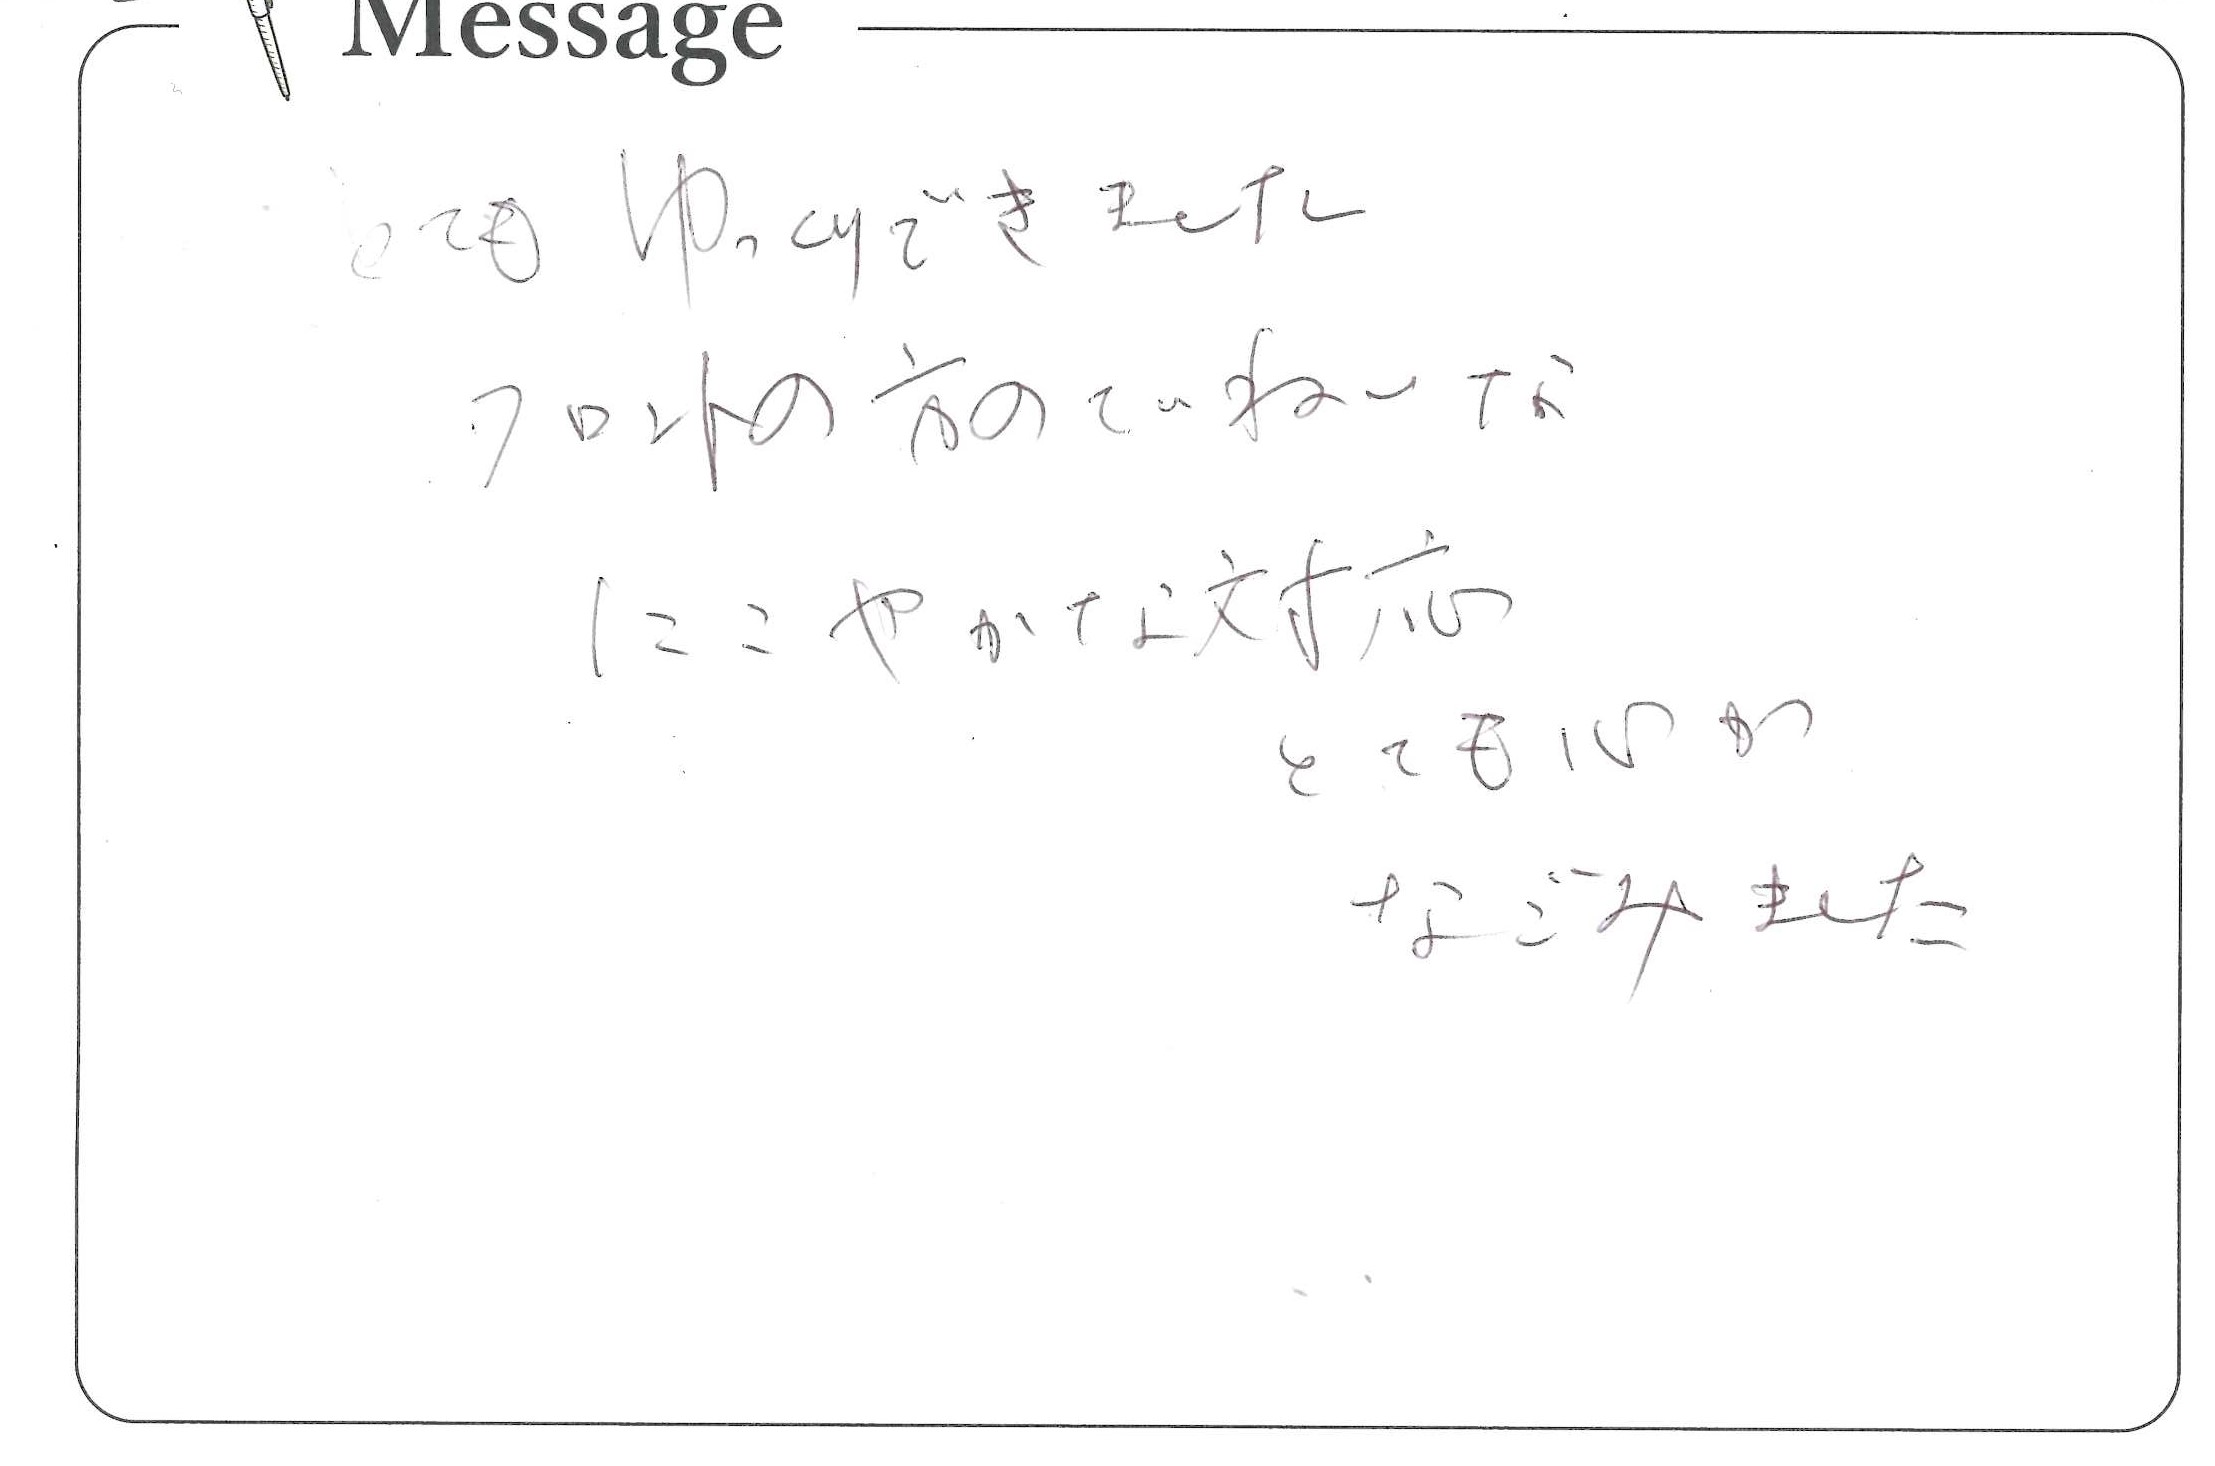 Message
とてもゆっくりできました
フロントの方のていねいな
にこやかな対応
とても心が
なごみました